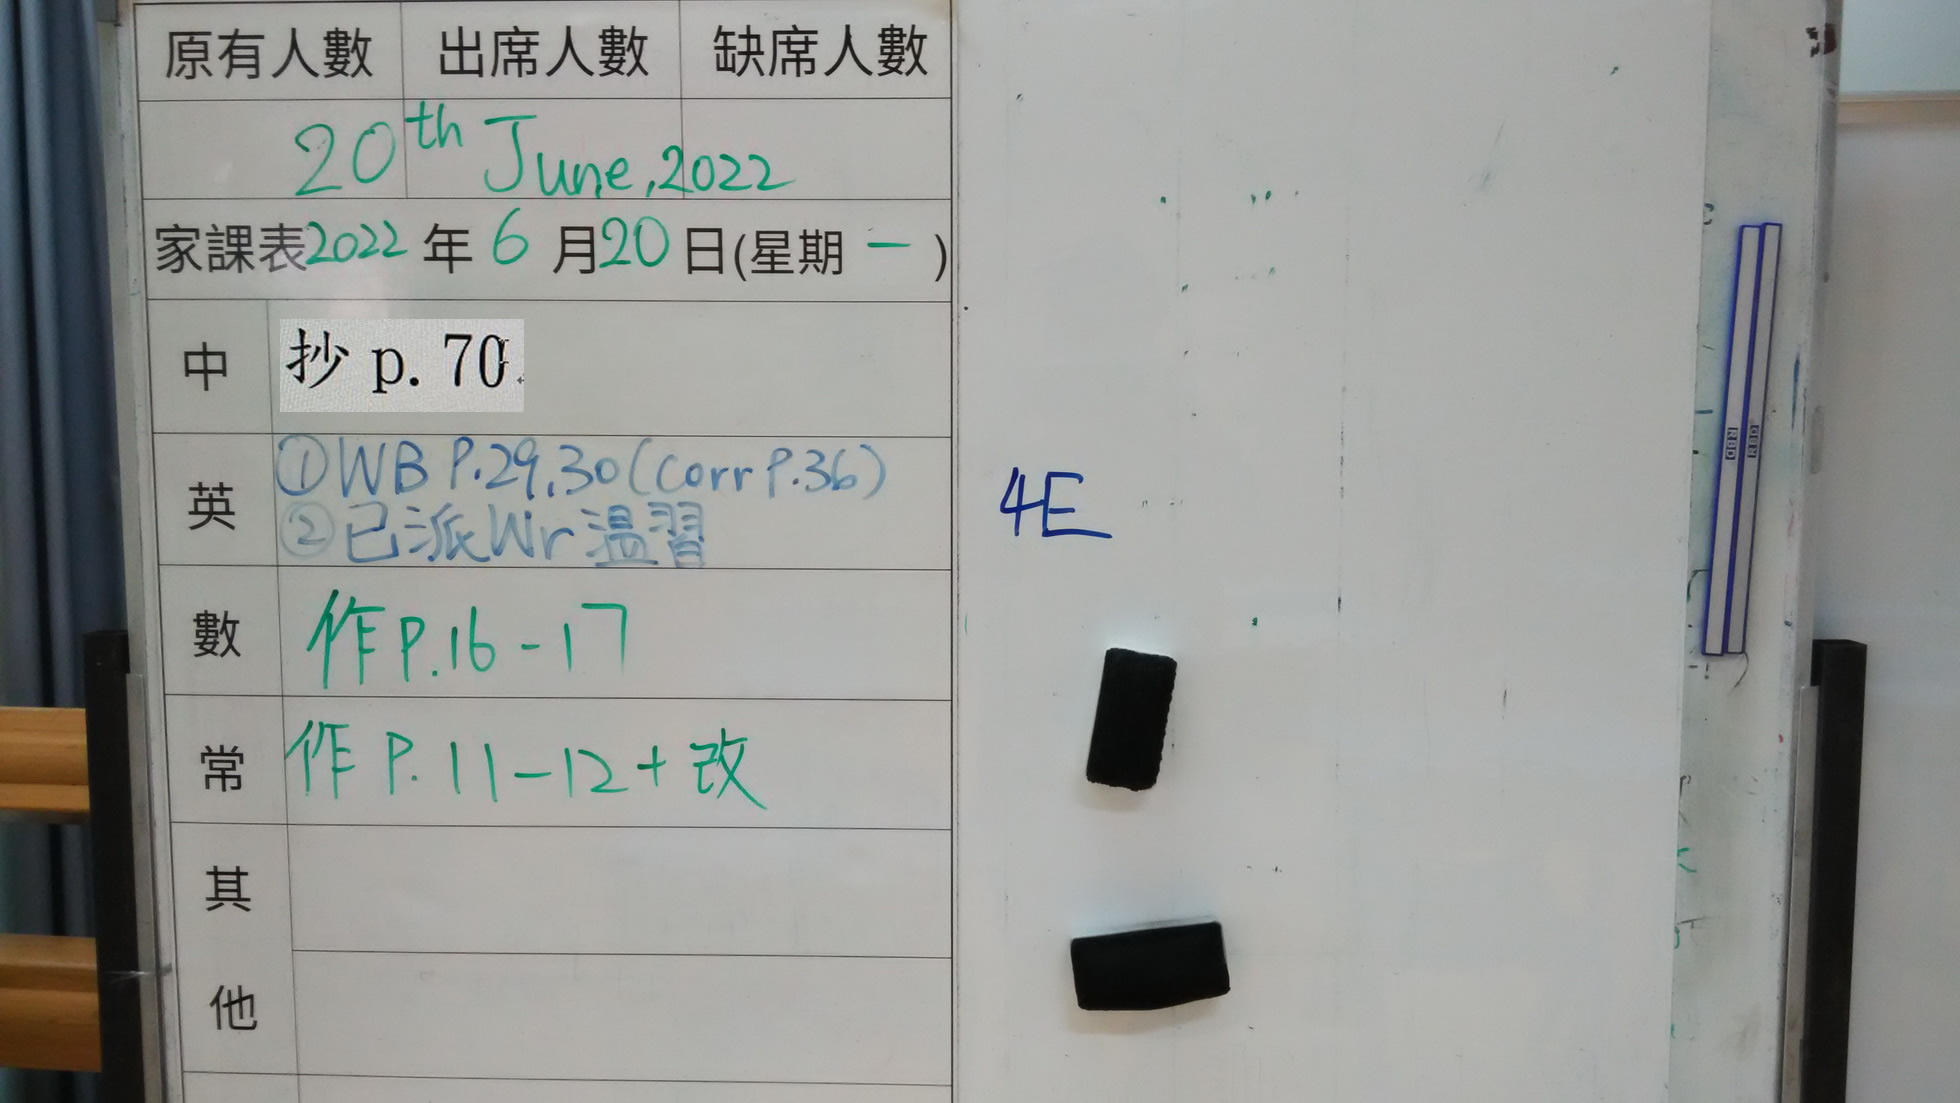 原有人數 出席人數 缺席人數
20th June, 2022
家課表2022年6月20日(星期一)
中 抄 p. 70
英 ①WB P.29,30(Corr P.36)
②已派Wr溫習
數 作P.16-17
常 作P.11-12+改
其他
4E